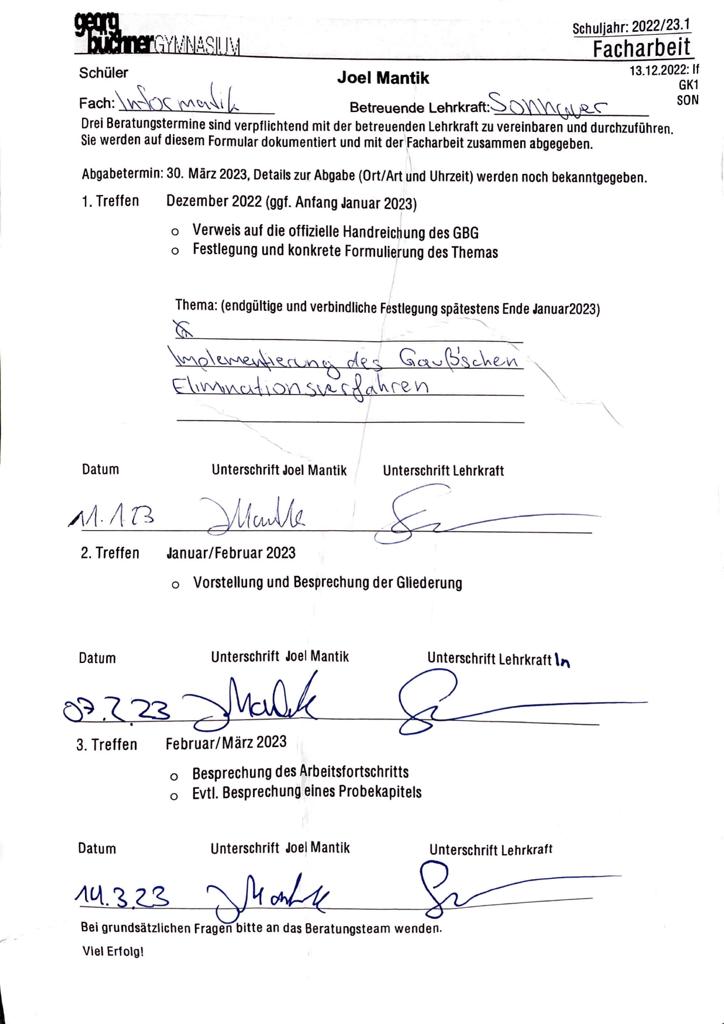 georg
büchnerGYMNASIUM
Schuljahr: 2022/23.1
Facharbeit
Schüler
Joel Mantik
13.12.2022: If
GK1
SON
Fach: Informatik
Betreuende Lehrkraft:
Drei Beratungstermine sind verpflichtend mit der betreuenden Lehrkraft zu vereinbaren und durchzuführen.
Sie werden auf diesem Formular dokumentiert und mit der Facharbeit zusammen abgegeben.
Abgabetermin: 30. März 2023, Details zur Abgabe (Ort/Art und Uhrzeit) werden noch bekanntgegeben.
1. Treffen Dezember 2022 (ggf. Anfang Januar 2023)
o Verweis auf die offizielle Handreichung des GBG
o Festlegung und konkrete Formulierung des Themas
Thema: (endgültige und verbindliche Festlegung spätestens Ende Januar2023)
Implementierung des Gauß'schen
Eliminationsverfahren
Datum Unterschrift Joel Mantik Unterschrift Lehrkraft
11.1 23 JMantik
2. Treffen Januar/Februar 2023
o Vorstellung und Besprechung der Gliederung
Datum Unterschrift Joel Mantik Unterschrift Lehrkraft In
07.2.23 JMantik
3. Treffen Februar/März 2023
o Besprechung des Arbeitsfortschritts
o Evtl. Besprechung eines Probekapitels
Datum Unterschrift Joel Mantik Unterschrift Lehrkraft
14.3.23 JMantik
Bei grundsätzlichen Fragen bitte an das Beratungsteam wenden.
Viel Erfolg!